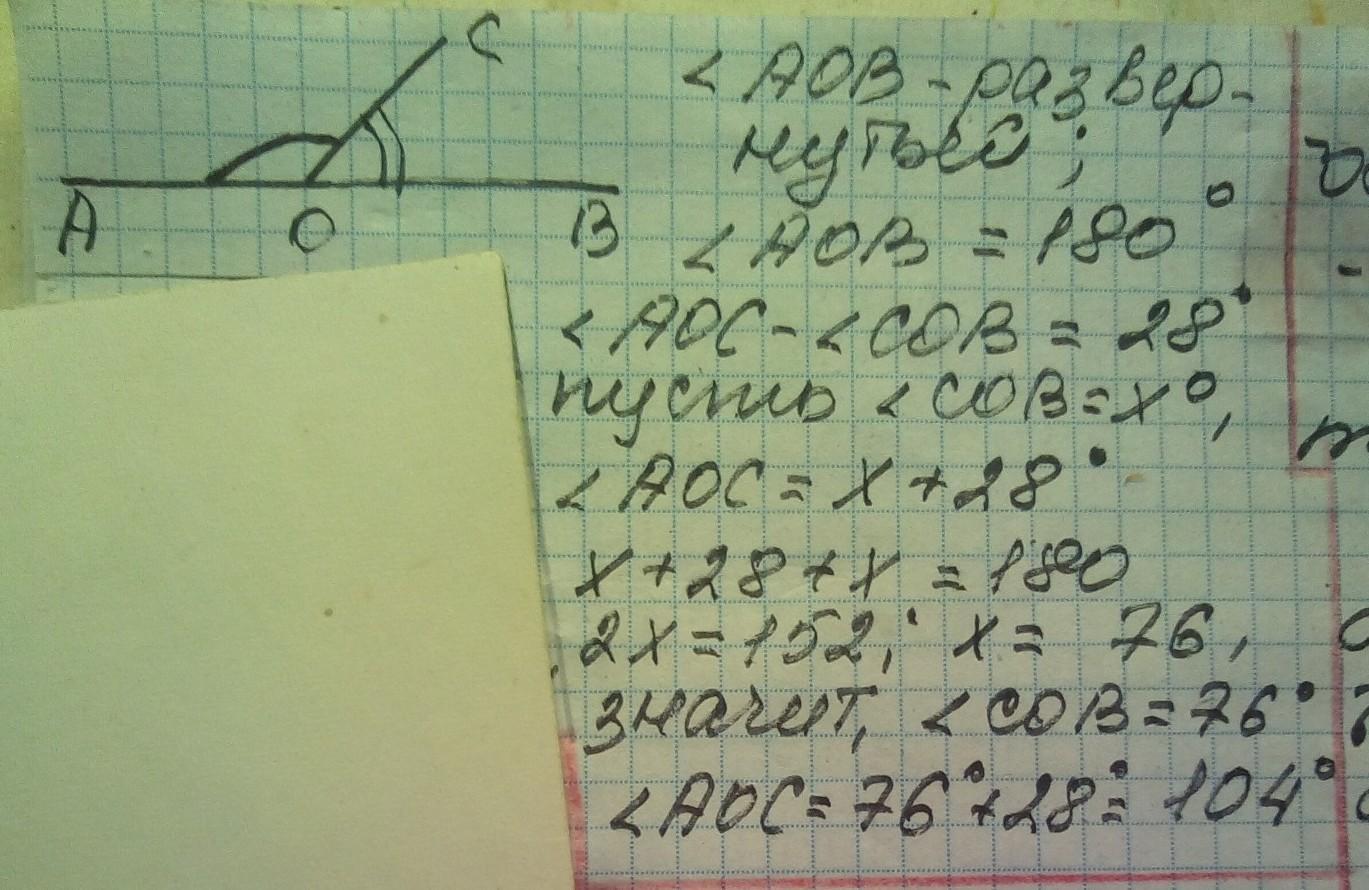 C
A O B
∠AOB - развер-
нутый;
∠AOB = 180°
∠AOC - ∠COB = 28°
пусть ∠COB = x°,
∠AOC = x + 28°
x + 28 + x = 180
2x = 152; x = 76,
значит, ∠COB = 76°
∠AOC = 76° + 28° = 104°